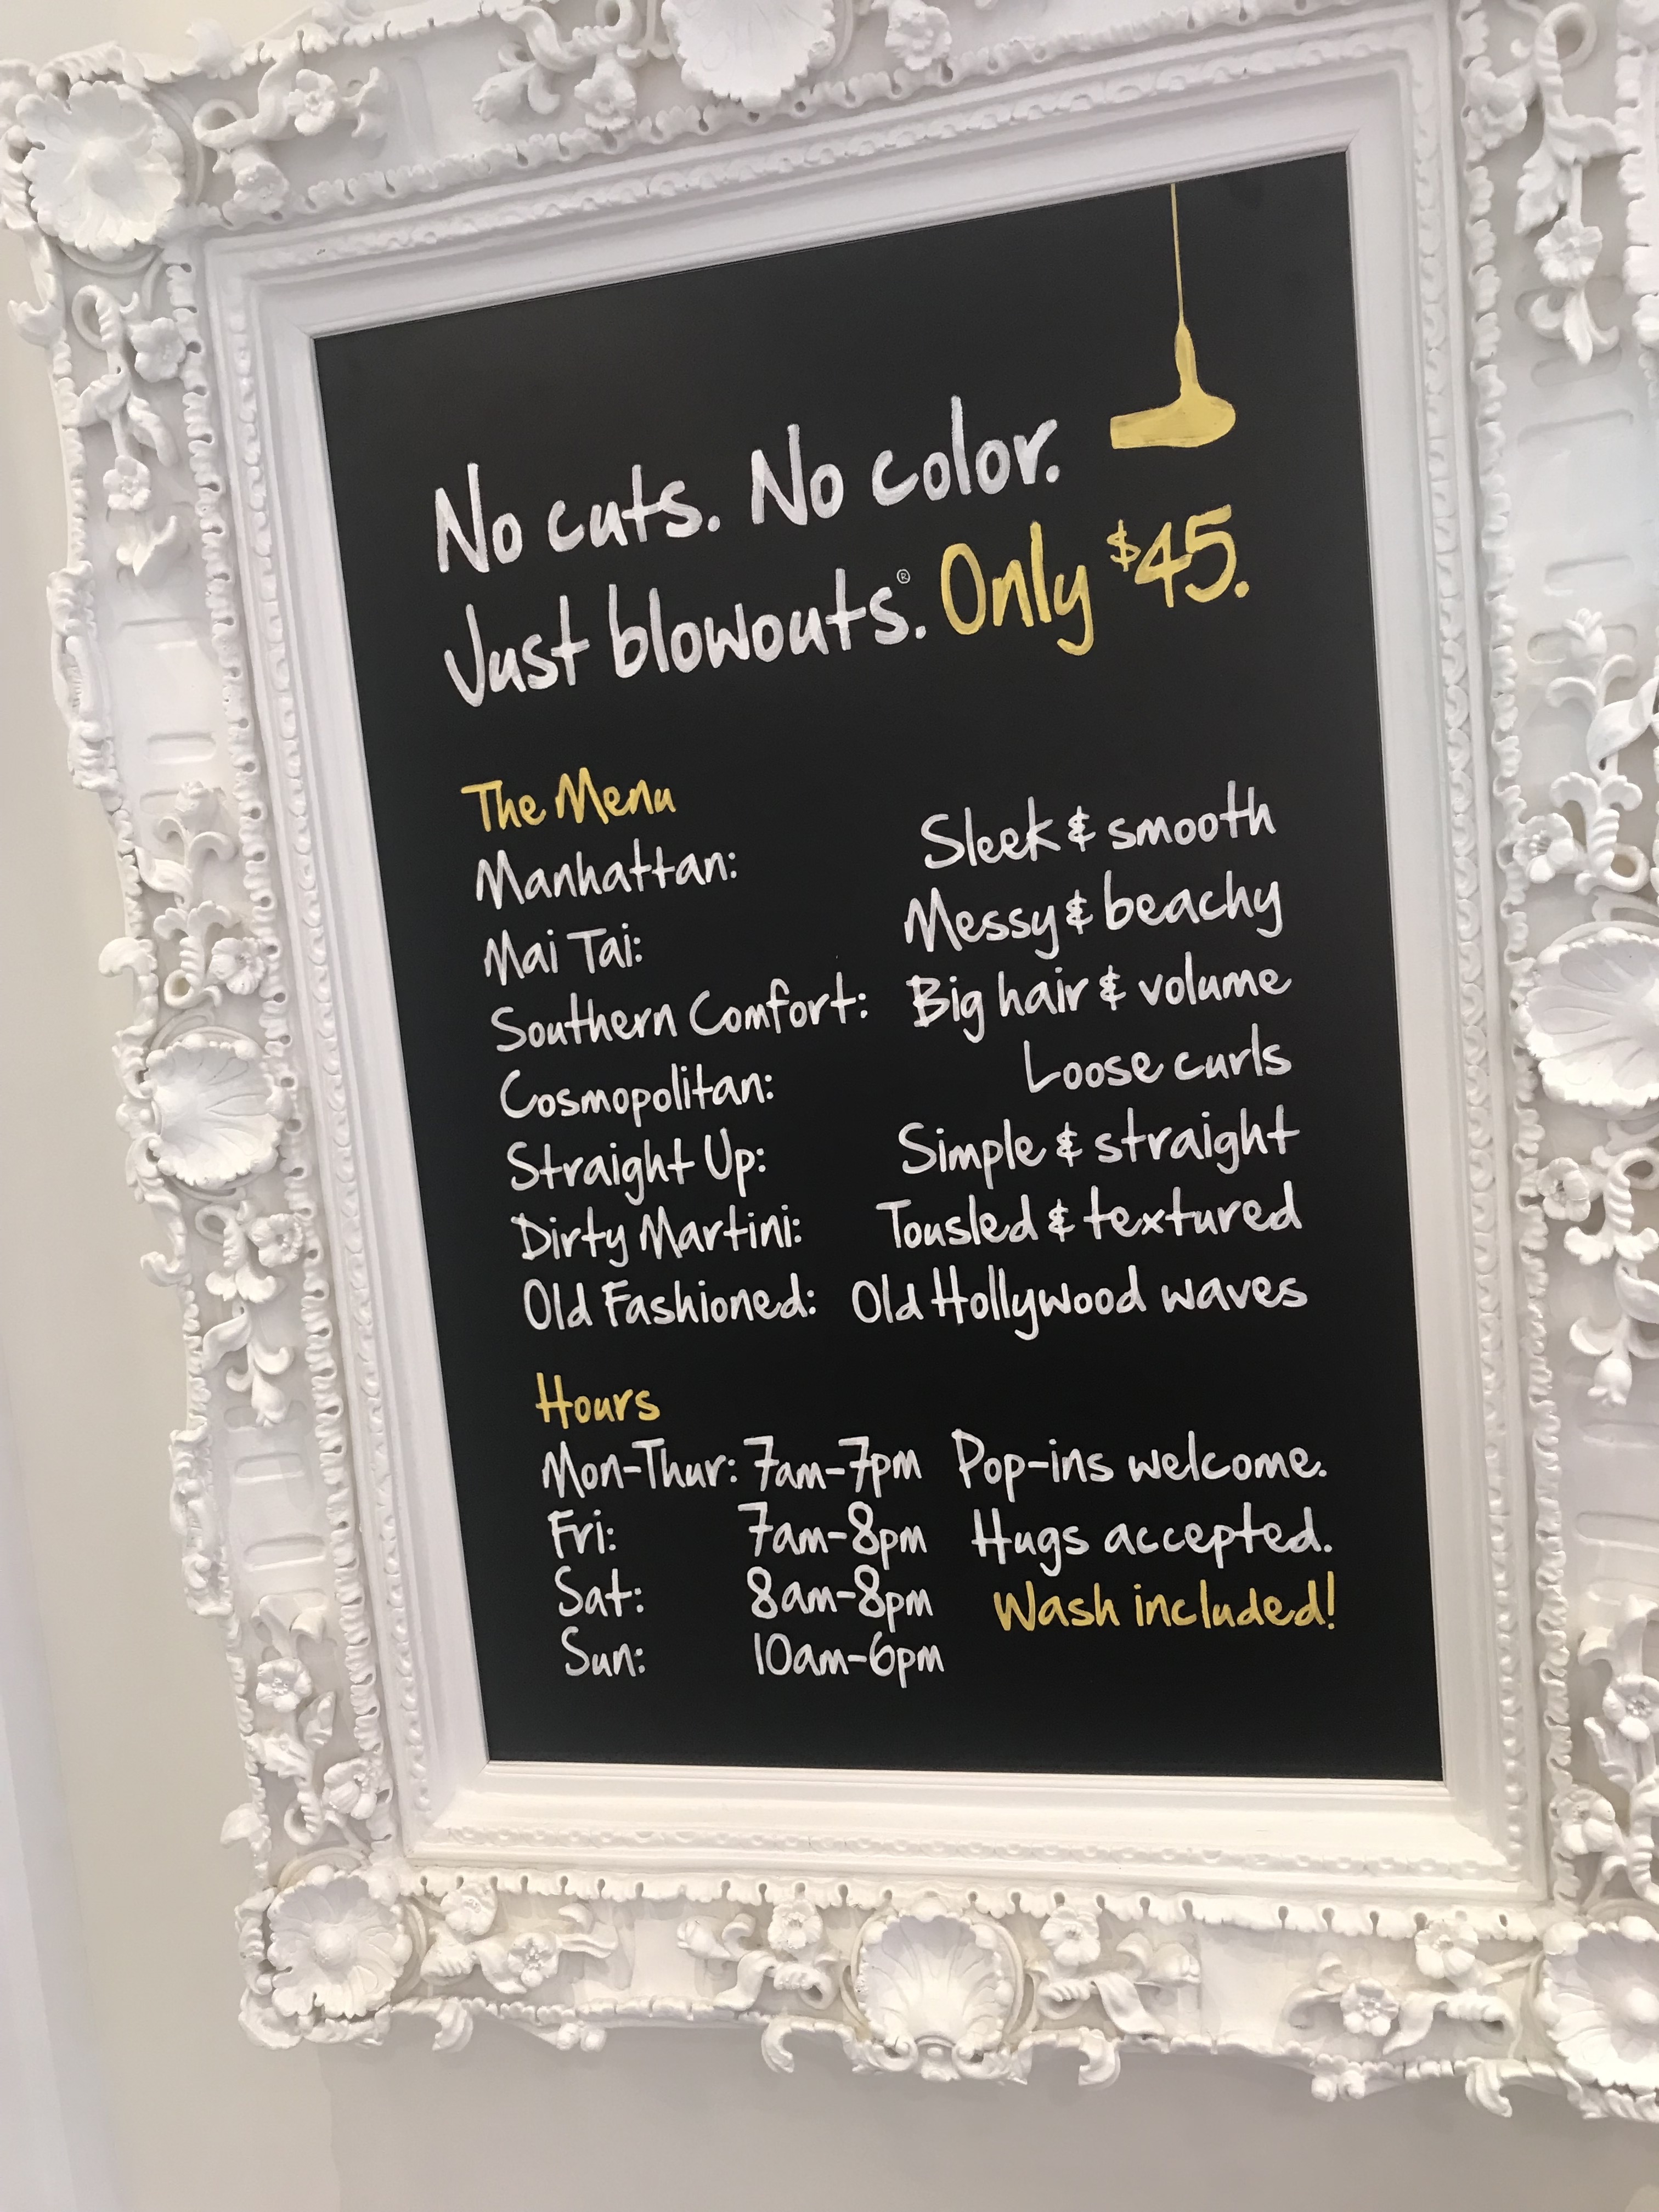 No cuts. No color.
Just blowouts.® Only $45.
The Menu
Manhattan: Sleek & smooth
Mai Tai: Messy & beachy
Southern Comfort: Big hair & volume
Cosmopolitan: Loose curls
Straight Up: Simple & straight
Dirty Martini: Tousled & textured
Old Fashioned: Old Hollywood waves
Hours
Mon-Thur: 7am-7pm Pop-ins welcome.
Fri: 7am-8pm Hugs accepted.
Sat: 8am-8pm Wash included!
Sun: 10am-6pm